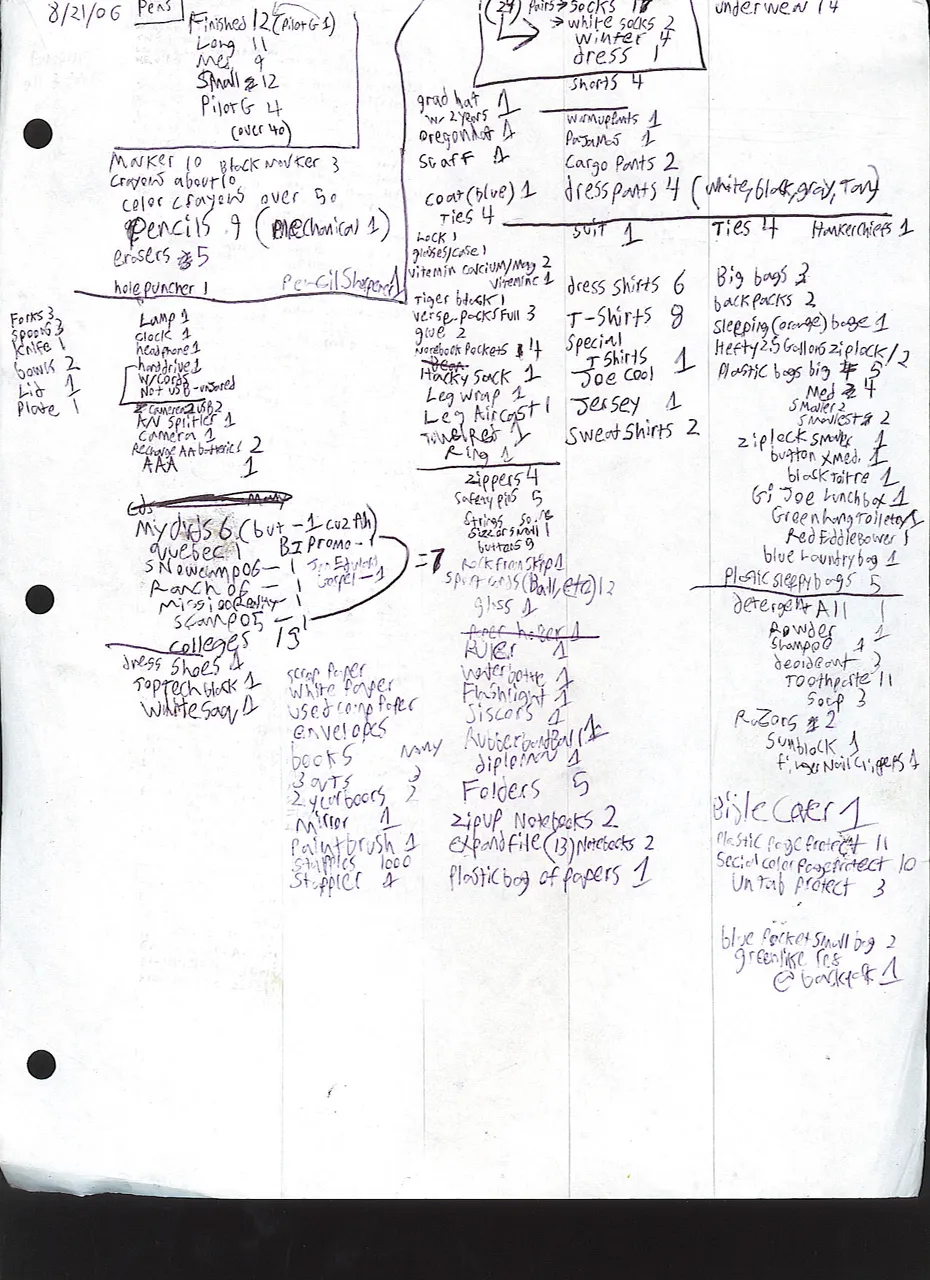 8/21/06
Pens
Finished 12 (Pilot G 1)
Long 11
Med 9
Small 12
Pilot G 4
(over 40)
Marker 10 Black Marker 3
Crayons about 10
color crayons over 50
Pencils 9 (mechanical 1)
erasers 5
Pencil Sharpener 1
hole puncher 1
Forks 3
Spoons 3
Knife 1
bowls 2
Lid 1
Plate 1
Lamp 1
Clock 1
headphone 1
harddrive 1
w/cords
Not USB - unsored
Camera 2 USB 2
A/V Splitter 1
Camera 1
Recharge AA batteries 2
AAA 1
cds many
My dvds 6 (but -1 cuz Ah)
Quebec 1
BI Promo - 1
Snowcamp 06 - 1
Jon Edwards
Gospel - 1
Ranch 06 - 1
Mission Reality - 1
Scamp 05 - 1
= 7
colleges 15
dress shoes 1
Top Tech black 1
White Saq 1
scrap Paper
White Paper
used comp Paper
envelopes
books many
3 3
2 yearbooks 2
Mirror 1
paintbrush 1
stapples 1000
Stappler 1
(24) Pairs → socks
→ white socks 2
Winter 4
dress 1
Shorts 4
grad hat 1
w/ 2 years
oregon hat 1
Scarf 1
coat (blue) 1
Ties 4
Lock 1
glasses/case 1
vitamin calcium/Mag 2
vitamin c 1
Tiger black 1
verse packs full 3
glue 2
Notebook Pockets 4
Hacky Sack 1
Leg Wrap 1
Leg Aircast 1
Towel Red 1
Ring 1
Zippers 4
Safety pins 5
Strings
Sizzors small 1
buttons 9
Rock from skip 1
sport cards (Ball, etc) 12
glass 1
Ruler 1
water bottle 1
Flashlight 1
Siscors 1
Rubber band Ball 1
diploma 1
Folders 5
Zipup Notebooks 2
expand file (13) Notebooks 2
Plastic bag of papers 1
Warmup Pants 1
Pajamas 1
Cargo Pants 2
dress pants 4 (white, black, gray, Tan)
Suit 1
Ties 4
Hankerchiefs 1
dress Shirts 6
T-Shirts 8
Special
T Shirts 1
Joe Cool
Jersey 1
Sweat Shirts 2
underwear 14
Big bags 3
backpacks 2
sleeping (orange) bage 1
Hefty 2.5 Gallons ziplock 12
Plastic bags big 5
Med 4
Smaller 2
Smallest 2
Ziplock small 1
button xmed. 1
Gi Joe Lunchbox 1
Green hang Toiletry 1
Red Eddie Bower 1
blue Laundry bag 1
Plastic sleepy bags 5
detergent All 1
Powder 1
Shampoo 1
deoideant 3
Toothpaste 11
Soap 3
Razors 2
Sunblock 1
finger Nail Clippers 1
Bible Cover 1
Plastic page protect 11
Secial color Page protect 10
Un Tab protect 3
blue Pocket small bag 2
greenlike